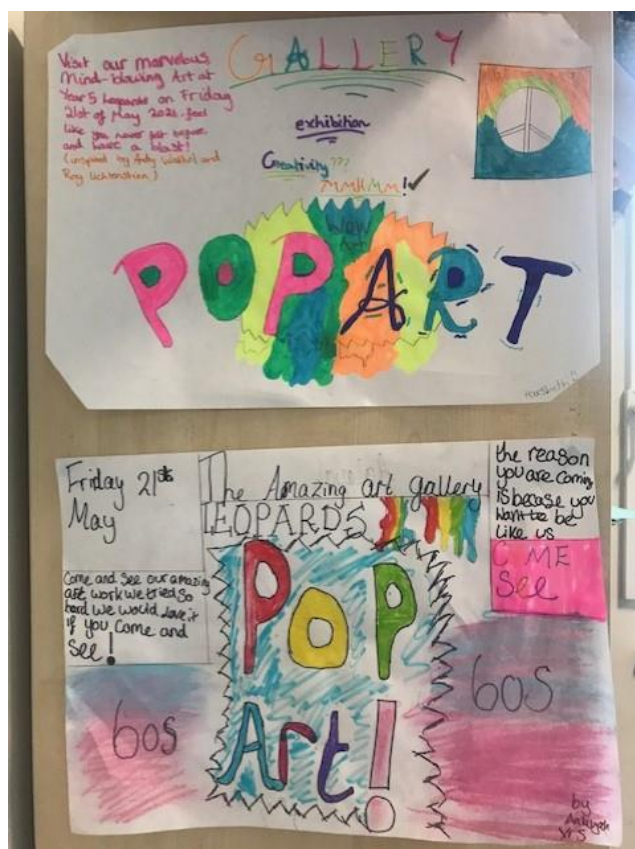 GALLERY
Visit our marvelous
Mind-blowing Art at
Year 5 Leopards on Friday
21st of May 2021. feel
like you never felt before
and have a blast!
(inspired by Andy Warhol and
Roy Lichtenstein)
exhibition
Creativity???
MMKMM!
WOW
Art
POP ART
Friday 21st
May
The Amazing art gallery
LEOPARDS
the reason
you are coming
is becase you
want to be
like us
COME
See
Come and See our amazing
art work we tried so
hard we would love it
if you Come and
See!
POP
Art!
60s
60s
by
Yr 5